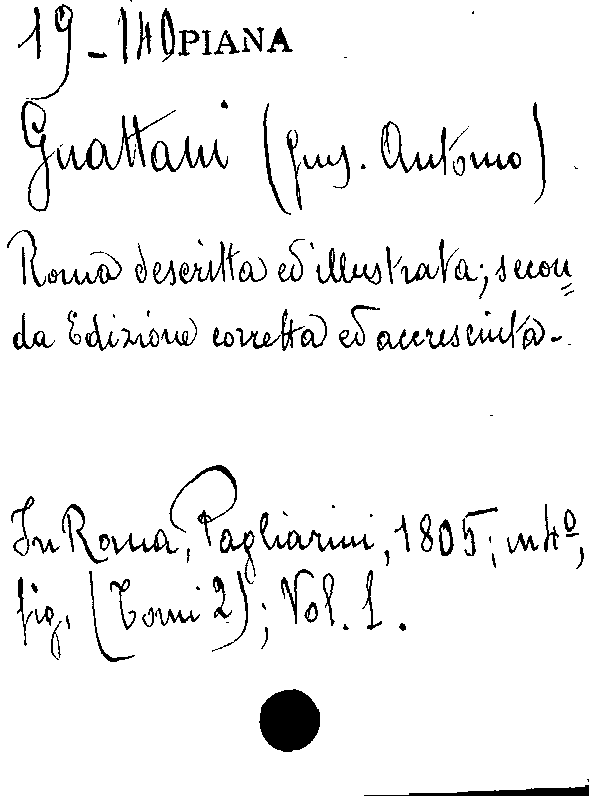 19-140 PIANA
Guattani (Gius. Antonio)
Roma descritta ed illustrata; secon=
da Edizione corretta ed accresciuta.
In Roma, Pagliarini, 1805; in 4º,
fig. (Tomi 2); Vol. 1.